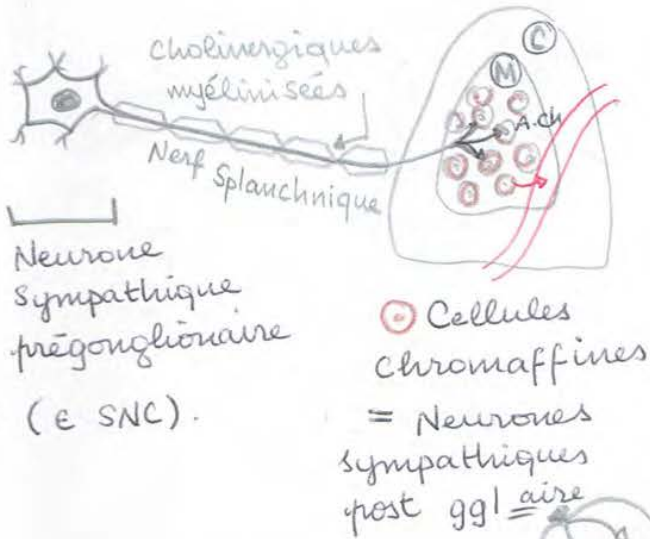 cholinergiques
myélinisées
C
M
A.ch
Nerf Splanchnique
Neurone
Sympathique
prégonglionaire
(∈ SNC).
Cellules
Chromaffines
= Neurones
sympathiques
post ggl aire